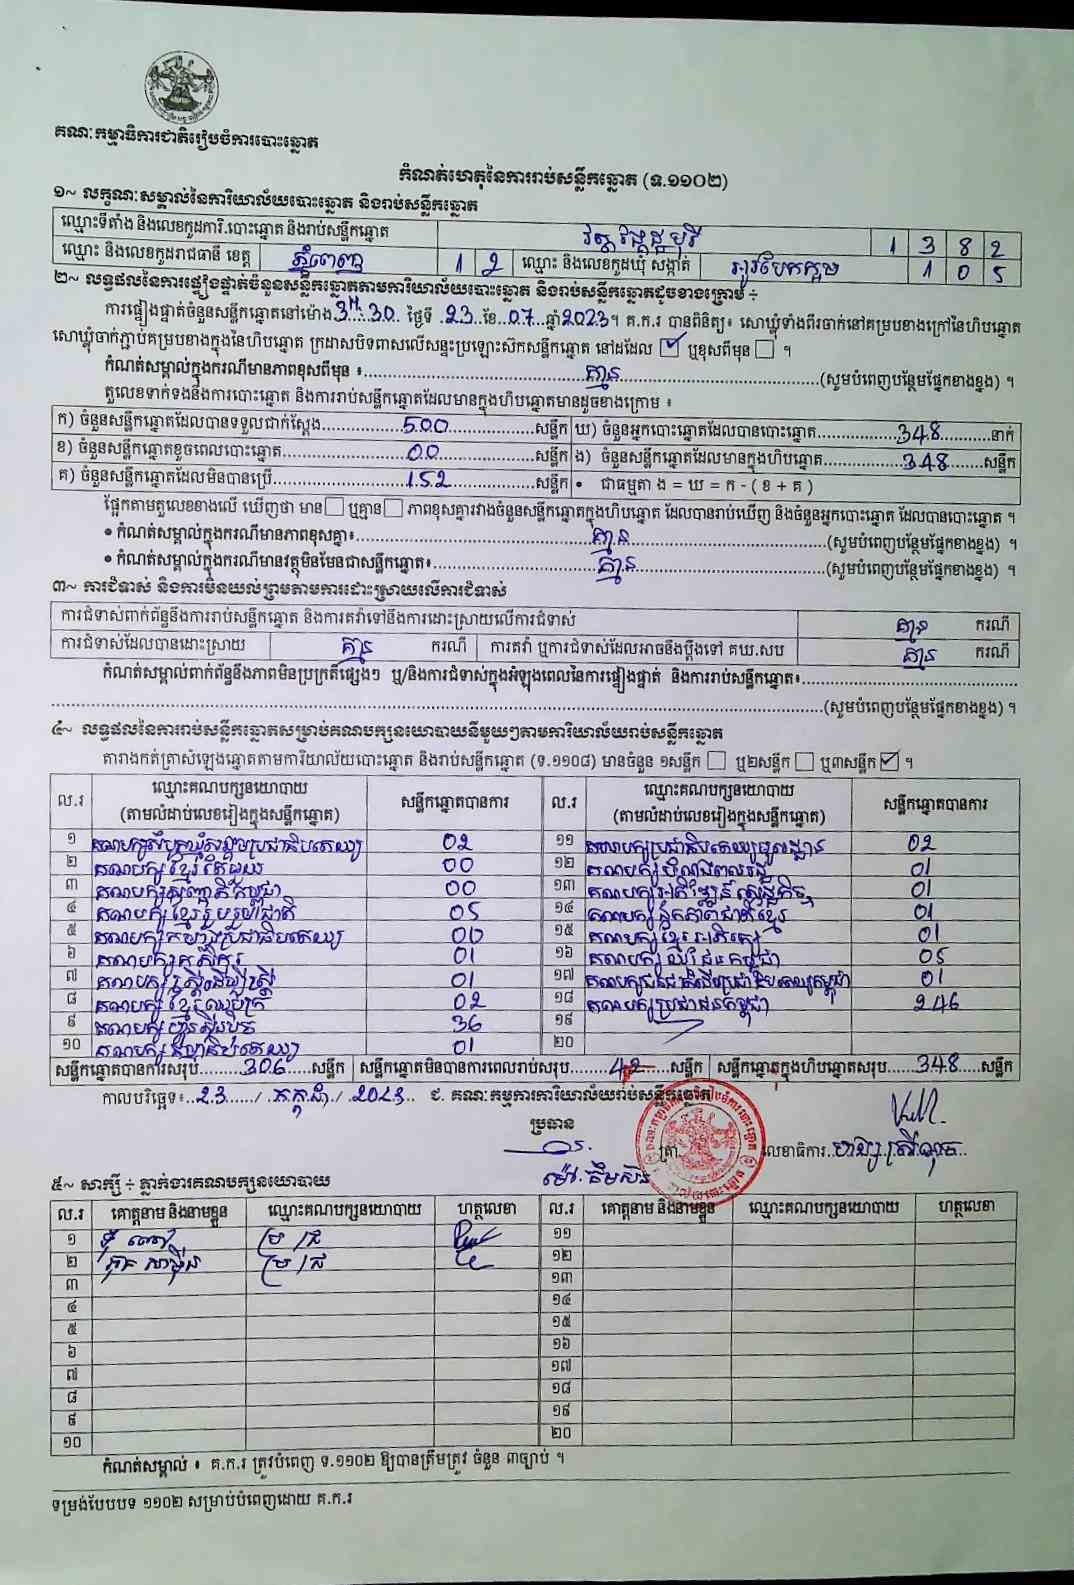 គណៈកម្មាធិការជាតិរៀបចំការបោះឆ្នោត
កំណត់ហេតុនៃការរាប់សន្លឹកឆ្នោត (ទ.១១០២)
១~ លក្ខណៈសម្គាល់នៃការិយាល័យបោះឆ្នោត និងរាប់សន្លឹកឆ្នោត
ឈ្មោះទីតាំង និងលេខកូដការិ.បោះឆ្នោត និងរាប់សន្លឹកឆ្នោត 1 3 8 2
ឈ្មោះ និងលេខកូដរាជធានី ខេត្ត ភ្នំពេញ 1 2 ឈ្មោះ និងលេខកូដឃុំ សង្កាត់ អូរបែកក្អម 1 0 5
២~ លទ្ធផលនៃការផ្ទៀងផ្ទាត់ចំនួនសន្លឹកឆ្នោតតាមការិយាល័យបោះឆ្នោត និងរាប់សន្លឹកឆ្នោតដូចខាងក្រោម ÷
ការផ្ទៀងផ្ទាត់ចំនួនសន្លឹកឆ្នោតនៅម៉ោង 3H:30 ថ្ងៃទី 23 ខែ 07 ឆ្នាំ 2023។ គ.ក.រ បានពិនិត្យ៖ សោឃ្លុំទាំងពីរចាក់នៅគម្របខាងក្រៅនៃហិបឆ្នោត
សោឃ្លុំចាក់ភ្ជាប់គម្របខាងក្នុងនៃហិបឆ្នោត ក្រដាសបិទពាសលើសន្ទះប្រឡោះស៊កសន្លឹកឆ្នោត នៅដដែល ☑ ឬខុសពីមុន ☐ ។
កំណត់សម្គាល់ក្នុងករណីមានភាពខុសពីមុន ៖ គ្មាន (សូមបំពេញបន្ថែមផ្នែកខាងខ្នង) ។
តួលេខទាក់ទងនឹងការបោះឆ្នោត និងការរាប់សន្លឹកឆ្នោតដែលមានក្នុងហិបឆ្នោតមានដូចខាងក្រោម ៖
ក) ចំនួនសន្លឹកឆ្នោតដែលបានទទួលជាក់ស្តែង 500 សន្លឹក ឃ) ចំនួនអ្នកបោះឆ្នោតដែលបានបោះឆ្នោត 348 នាក់
ខ) ចំនួនសន្លឹកឆ្នោតខូចពេលបោះឆ្នោត 00 សន្លឹក ង) ចំនួនសន្លឹកឆ្នោតដែលមានក្នុងហិបឆ្នោត 348 សន្លឹក
គ) ចំនួនសន្លឹកឆ្នោតដែលមិនបានប្រើ 152 សន្លឹក • ជាធម្មតា ង = ឃ = ក - ( ខ + គ )
ផ្អែកតាមតួលេខខាងលើ ឃើញថា មាន ☐ ឬគ្មាន ☐ ភាពខុសគ្នារវាងចំនួនសន្លឹកឆ្នោតក្នុងហិបឆ្នោត ដែលបានរាប់ឃើញ និងចំនួនអ្នកបោះឆ្នោត ដែលបានបោះឆ្នោត ។
• កំណត់សម្គាល់ក្នុងករណីមានភាពខុសគ្នា៖ គ្មាន (សូមបំពេញបន្ថែមផ្នែកខាងខ្នង) ។
• កំណត់សម្គាល់ក្នុងករណីមានវត្ថុមិនមែនជាសន្លឹកឆ្នោត៖ គ្មាន (សូមបំពេញបន្ថែមផ្នែកខាងខ្នង) ។
៣~ ការជំទាស់ និងការមិនយល់ព្រមតាមការដោះស្រាយលើការជំទាស់
ការជំទាស់ពាក់ព័ន្ធនឹងការរាប់សន្លឹកឆ្នោត និងការតវ៉ាទៅនឹងការដោះស្រាយលើការជំទាស់ គ្មាន ករណី
ការជំទាស់ដែលបានដោះស្រាយ គ្មាន ករណី ការតវ៉ា ឬការជំទាស់ដែលអាចនឹងប្តឹងទៅ គឃ.សប គ្មាន ករណី
កំណត់សម្គាល់ពាក់ព័ន្ធនឹងភាពមិនប្រក្រតីផ្សេងៗ ឬ/និងការជំទាស់ក្នុងអំឡុងពេលនៃការផ្ទៀងផ្ទាត់ និងការរាប់សន្លឹកឆ្នោត៖
(សូមបំពេញបន្ថែមផ្នែកខាងខ្នង) ។
៤~ លទ្ធផលនៃការរាប់សន្លឹកឆ្នោតសម្រាប់គណបក្សនយោបាយនីមួយៗតាមការិយាល័យរាប់សន្លឹកឆ្នោត
តារាងកត់ត្រាសំឡេងឆ្នោតតាមការិយាល័យបោះឆ្នោត និងរាប់សន្លឹកឆ្នោត (ទ.១១០៨) មានចំនួន ១សន្លឹក ☐ ឬ២សន្លឹក ☐ ឬ៣សន្លឹក ☑ ។
ល.រ ឈ្មោះគណបក្សនយោបាយ (តាមលំដាប់លេខរៀងក្នុងសន្លឹកឆ្នោត) សន្លឹកឆ្នោតបានការ ល.រ ឈ្មោះគណបក្សនយោបាយ (តាមលំដាប់លេខរៀងក្នុងសន្លឹកឆ្នោត) សន្លឹកឆ្នោតបានការ
១ គណបក្សសំបុកឃ្មុំសង្គមប្រជាធិបតេយ្យ 02 ១១ គណបក្សប្រជាធិបតេយ្យមូលដ្ឋាន 02
២ គណបក្សខ្មែរតែមួយ 00 ១២ គណបក្សបំណងពលរដ្ឋ 01
៣ គណបក្សសញ្ជាតិកម្ពុជា 00 ១៣ គណបក្សខ្មែរអភិវឌ្ឍន៍សេដ្ឋកិច្ច 01
៤ គណបក្សខ្មែររួបរួមជាតិ 05 ១៤ គណបក្សឯកភាពជាតិខ្មែរ 01
៥ គណបក្សកម្លាំងប្រជាធិបតេយ្យ 00 ១៥ គណបក្សខ្មែរអភិរក្ស 01
៦ គណបក្សកសិករ 01 ១៦ គណបក្សយុវជនកម្ពុជា 05
៧ គណបក្សស្ត្រីដើម្បីស្ត្រី 01 ១៧ គណបក្សជនជាតិដើមប្រជាធិបតេយ្យកម្ពុជា 01
៨ គណបក្សខ្មែរឈប់ក្រ 02 ១៨ គណបក្សប្រជាជនកម្ពុជា 246
៩ គណបក្សហ៊្វុនស៊ិនប៉ិច 36 ១៩
១០ គណបក្សធម្មាធិបតេយ្យ 01 ២០
សន្លឹកឆ្នោតបានការសរុប 306 សន្លឹក សន្លឹកឆ្នោតមិនបានការពេលរាប់សរុប 42 សន្លឹក សន្លឹកឆ្នោតក្នុងហិបឆ្នោតសរុប 348 សន្លឹក
កាលបរិច្ឆេទ៖ 23 / កក្កដា / 2023 ជ. គណៈកម្មការការិយាល័យរាប់សន្លឹកឆ្នោត
ប្រធាន
ត្រា លេខាធិការ
៥~ សាក្សី ÷ ភ្នាក់ងារគណបក្សនយោបាយ
ល.រ គោត្តនាម និងនាមខ្លួន ឈ្មោះគណបក្សនយោបាយ ហត្ថលេខា ល.រ គោត្តនាម និងនាមខ្លួន ឈ្មោះគណបក្សនយោបាយ ហត្ថលេខា
១ ប្រ/ជ ១១
២ ប្រ/ជ ១២
៣ ១៣
៤ ១៤
៥ ១៥
៦ ១៦
៧ ១៧
៨ ១៨
៩ ១៩
១០ ២០
កំណត់សម្គាល់ ៖ គ.ក.រ ត្រូវបំពេញ ទ.១១០២ ឱ្យបានត្រឹមត្រូវ ចំនួន ៣ច្បាប់ ។
ទម្រង់បែបបទ ១១០២ សម្រាប់បំពេញដោយ គ.ក.រ